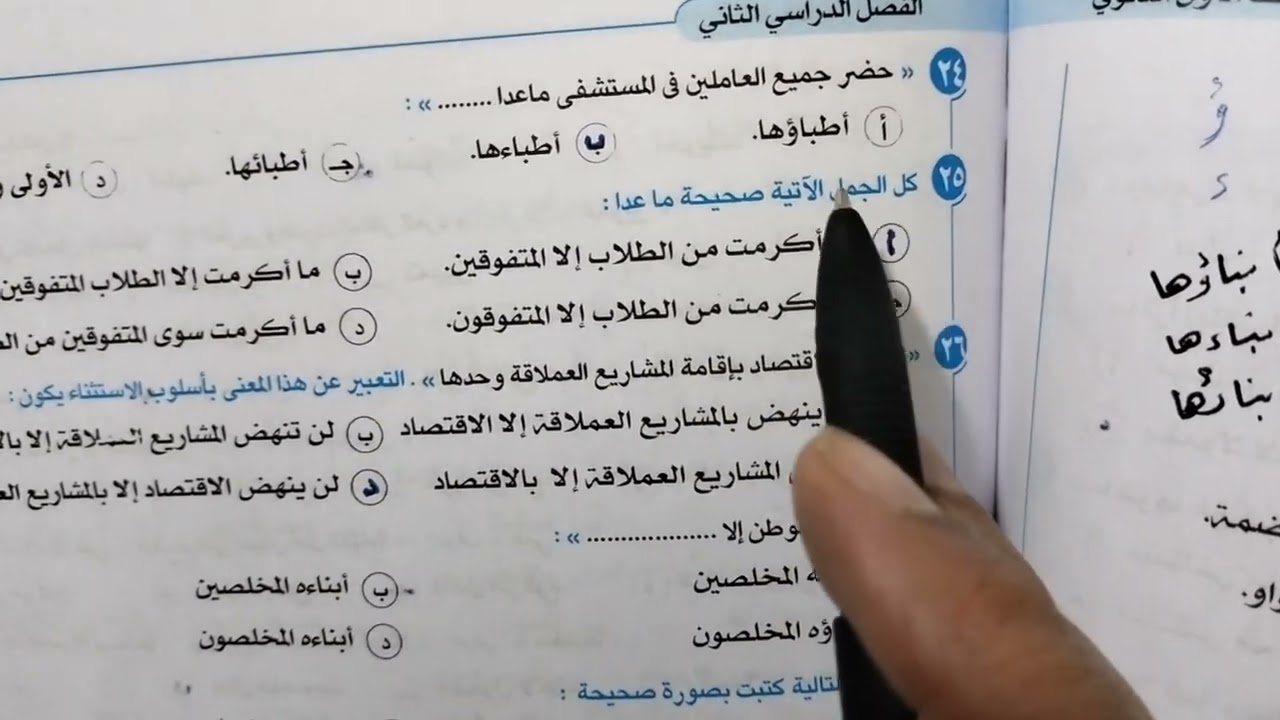 الفصل الدراسي الثاني
٢٤ « حضر جميع العاملين فى المستشفى ماعدا ........ » :
أ أطباؤها. ب أطباءها. جـ أطبائها. د الأولى
٢٥ كل الجمل الآتية صحيحة ما عدا :
أ أكرمت من الطلاب إلا المتفوقين. ب ما أكرمت إلا الطلاب المتفوقين
كرمت من الطلاب إلا المتفوقون. د ما أكرمت سوى المتفوقين من
٢٦ قتصاد بإقامة المشاريع العملاقة وحدها » . التعبير عن هذا المعنى بأسلوب الاستثناء يكون :
ينهض بالمشاريع العملاقة إلا الاقتصاد ب لن تنهض المشاريع العملاقة إلا
المشاريع العملاقة إلا بالاقتصاد د لن ينهض الاقتصاد إلا بالمشاريع
وطن إلا ................... » :
ه المخلصين ب أبناءه المخلصين
ؤه المخلصون د أبناءه المخلصون
تالية كتبت بصورة صحيحة :
ؤ
ء
بناؤها
بناءها
بنائها
ضمة.
واو.